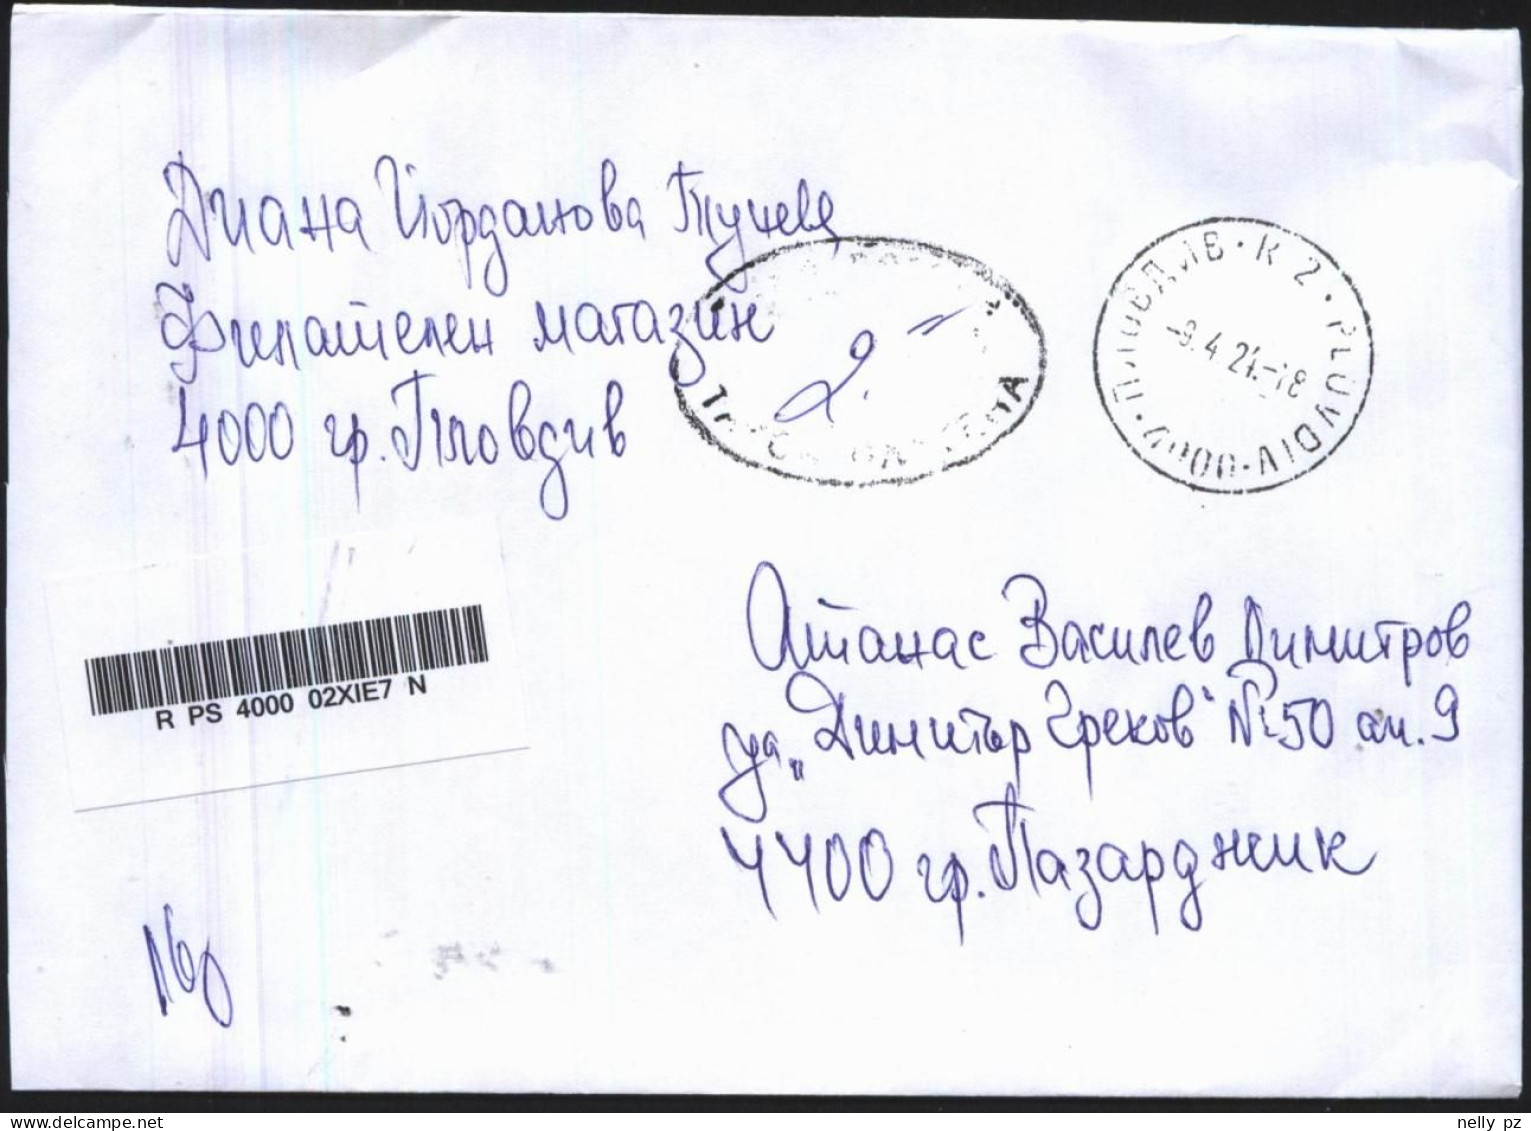 Диана Йорданова Тучева
Филателен магазин
4000 гр. Пловдив
ПЛОВДИВ · К 2 · PLOVDIV · 4000
-9.4.24.-18
R PS 4000 02XIE7 N
Атанас Василев Димитров
ул. „Димитър Греков" № 50 ап. 9
4400 гр. Пазарджик
160
nelly pz